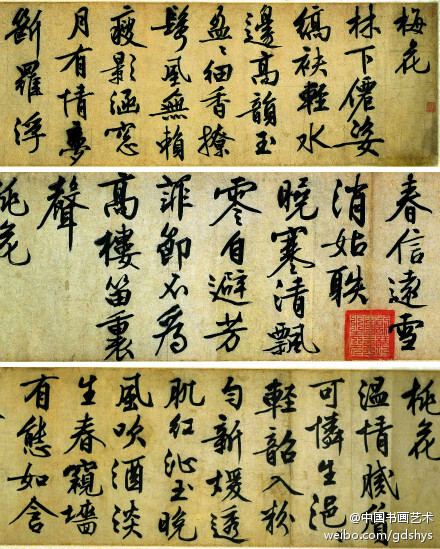 梅花
林下僊姿
縞袂輕水
邊高韻玉
盈〻細香撩
鬢風無賴
瘦影涵窓
月有情夢
斷羅浮
春信遠雪
消姑
曉寒清飄
零自避芳
菲節不為
高樓笛裏
聲
桃花
桃花
温情膩
可憐生浥
輕韶入粉
勻新煖透
肌紅沁玉晚
風吹酒淡
生春窺墻
有態如含
@中国书画艺术
weibo.com/gdshys